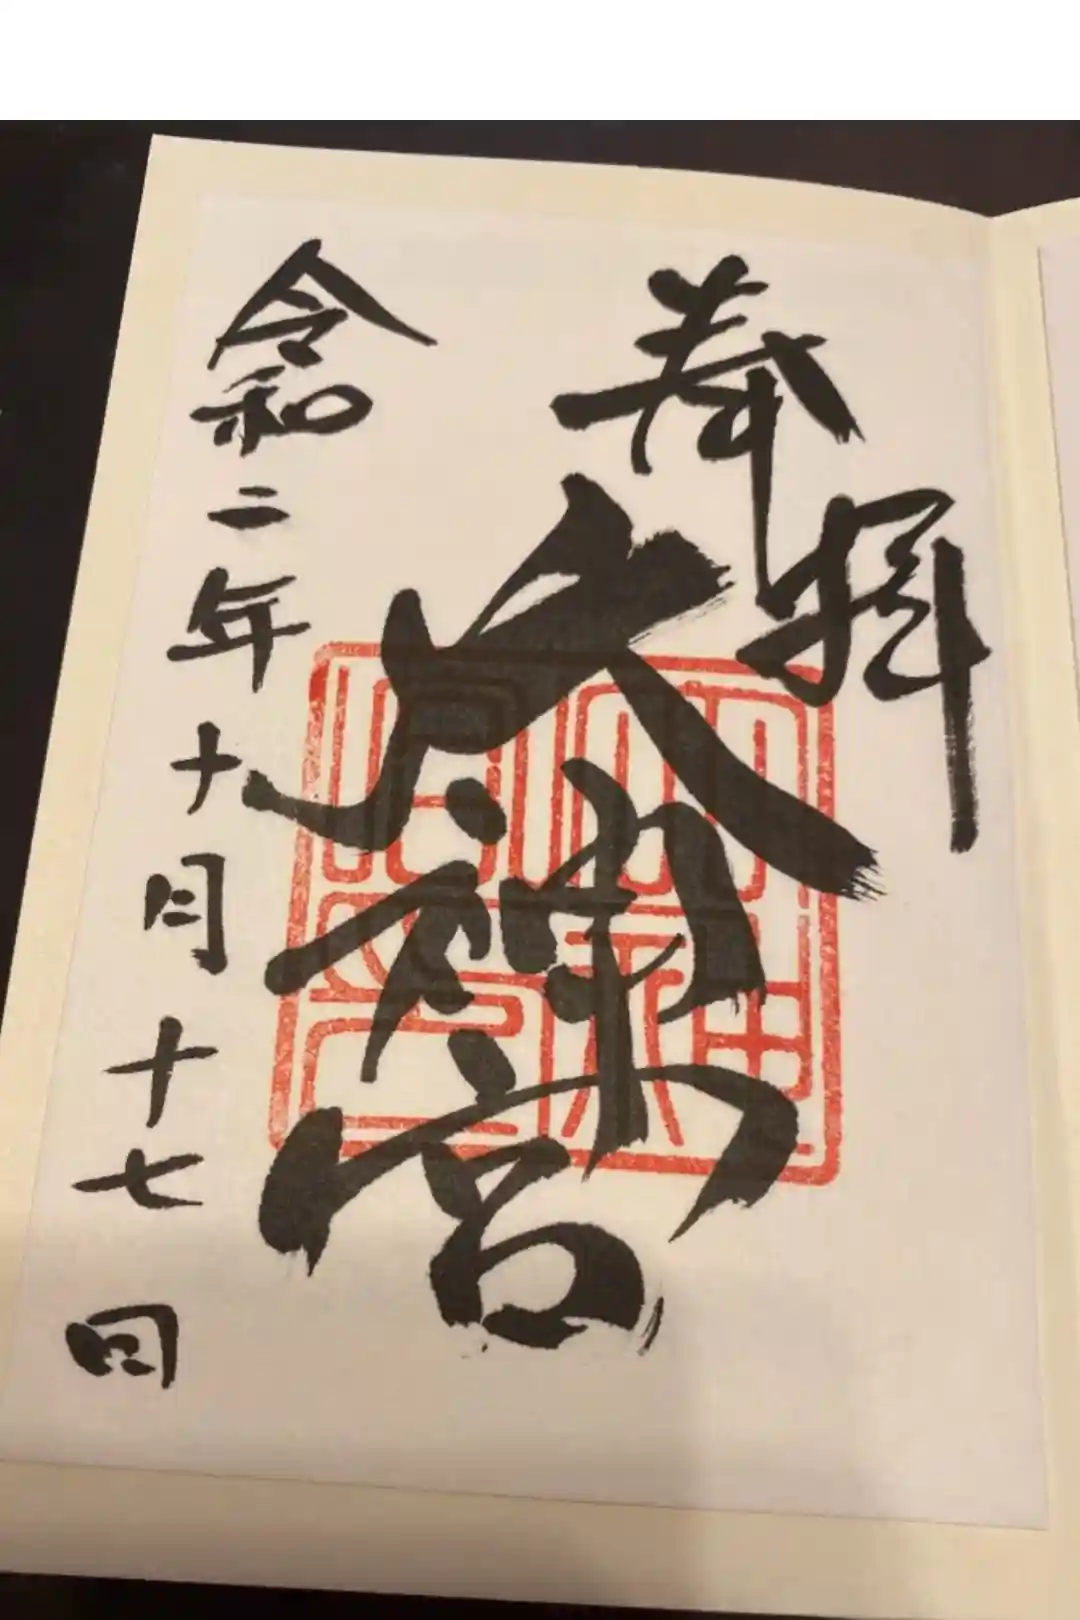 奉拝
太神宮
令和二年十月十七日